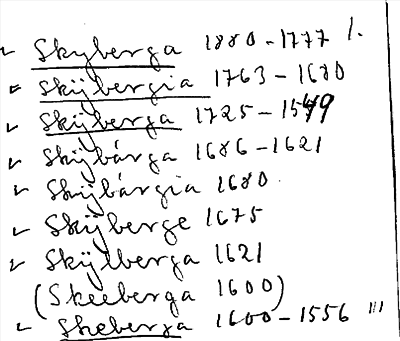 Skyberga 1880-1777 1.
Skÿbergia 1763-1680
Skÿberga 1725-1549
Skÿbärga 1686-1621
Skÿbärgia 1680
Skÿberge 1675
Skÿlberga 1621
(Skeeberga 1600)
Skeberga 1600-1556 III